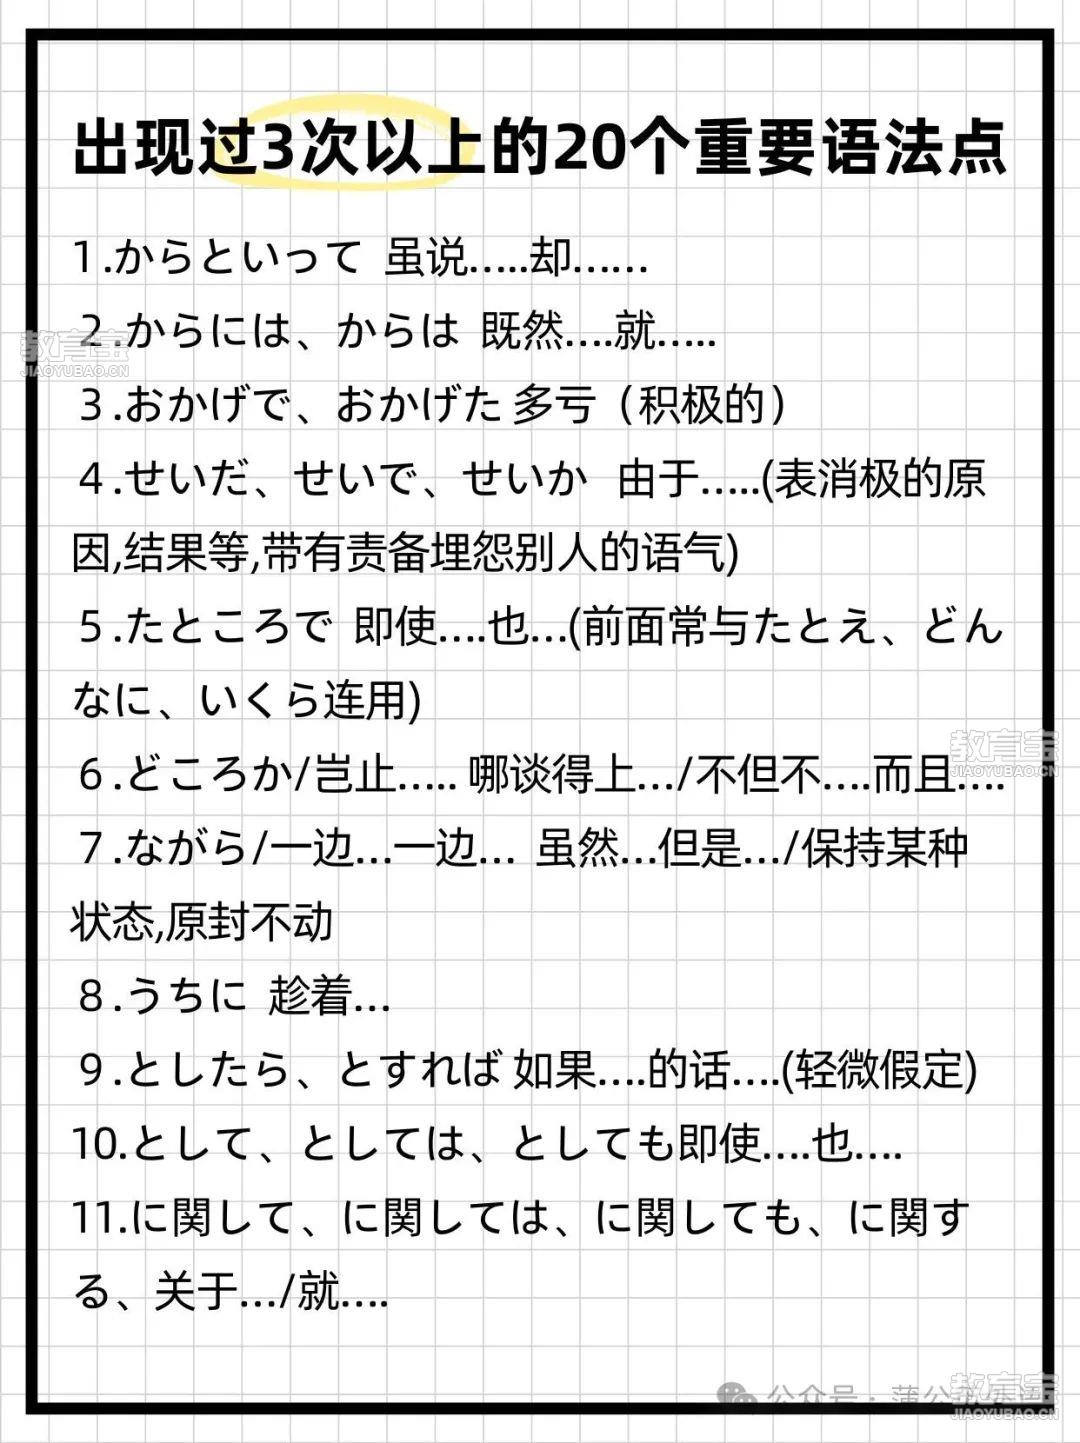 出现过3次以上的20个重要语法点
1.からといって 虽说.....却......
2.からには、からは 既然....就.....
教育宝
JIAOYUBAO.CN
3.おかげで、おかげた 多亏（积极的）
4.せいだ、せいで、せいか 由于.....(表消极的原
因,结果等,带有责备埋怨别人的语气)
5.たところで 即使....也...(前面常与たとえ、どん
なに、いくら连用)
6.どころか/岂止..... 哪谈得上.../不但不....而且....
教育宝
JIAOYUBAO.CN
7.ながら/一边...一边... 虽然...但是.../保持某种
状态,原封不动
8.うちに 趁着...
9.としたら、とすれば 如果....的话....(轻微假定)
10.として、としては、としても即使....也....
11.に関して、に関しては、に関しても、に関す
る、关于.../就....
公众号·蒲公英
教育宝
JIAOYUBAO.CN